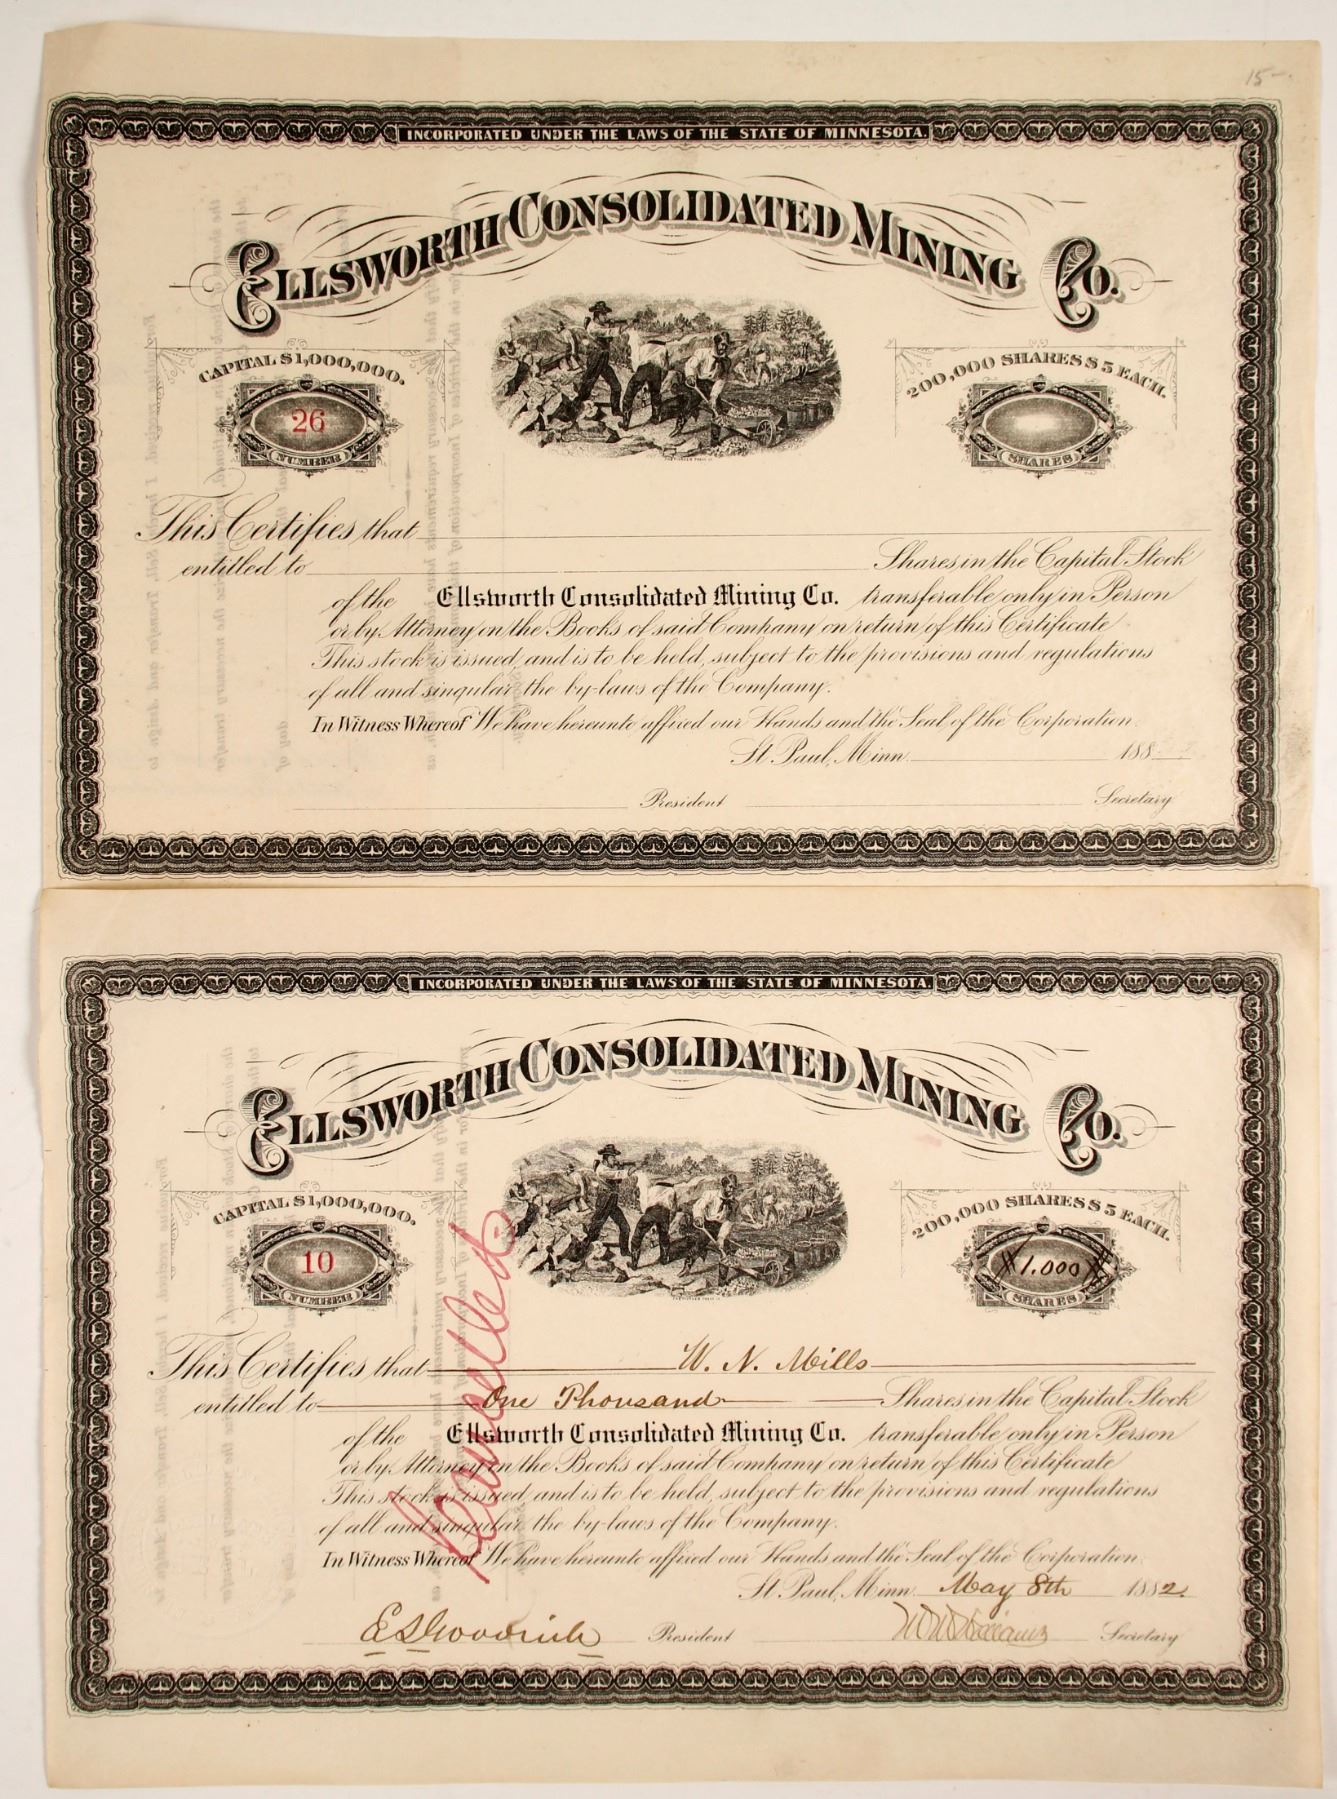 15-
INCORPORATED UNDER THE LAWS OF THE STATE OF MINNESOTA.
ELLSWORTH CONSOLIDATED MINING CO.
CAPITAL $1,000,000.
26
NUMBER
200,000 SHARES $5 EACH.
SHARES
This Certifies that
entitled to Shares in the Capital Stock
of the Ellsworth Consolidated Mining Co. transferable only in Person
or by Attorney on the Books of said Company on return of this Certificate
This stock is issued, and is to be held, subject to the provisions and regulations
of all and singular the by-laws of the Company.
In Witness Whereof We have hereunto affixed our Hands and the Seal of the Corporation.
St. Paul, Minn. 188
President Secretary
INCORPORATED UNDER THE LAWS OF THE STATE OF MINNESOTA.
ELLSWORTH CONSOLIDATED MINING CO.
CAPITAL $1,000,000.
10
NUMBER
200,000 SHARES $5 EACH.
1.000
SHARES
Cancelled
This Certifies that W. N. Mills
entitled to One Thousand Shares in the Capital Stock
of the Ellsworth Consolidated Mining Co. transferable only in Person
or by Attorney on the Books of said Company on return of this Certificate
This stock is issued, and is to be held, subject to the provisions and regulations
of all and singular the by-laws of the Company.
In Witness Whereof We have hereunto affixed our Hands and the Seal of the Corporation.
St. Paul, Minn. May 8th 1882.
E S Goodrich President Secretary